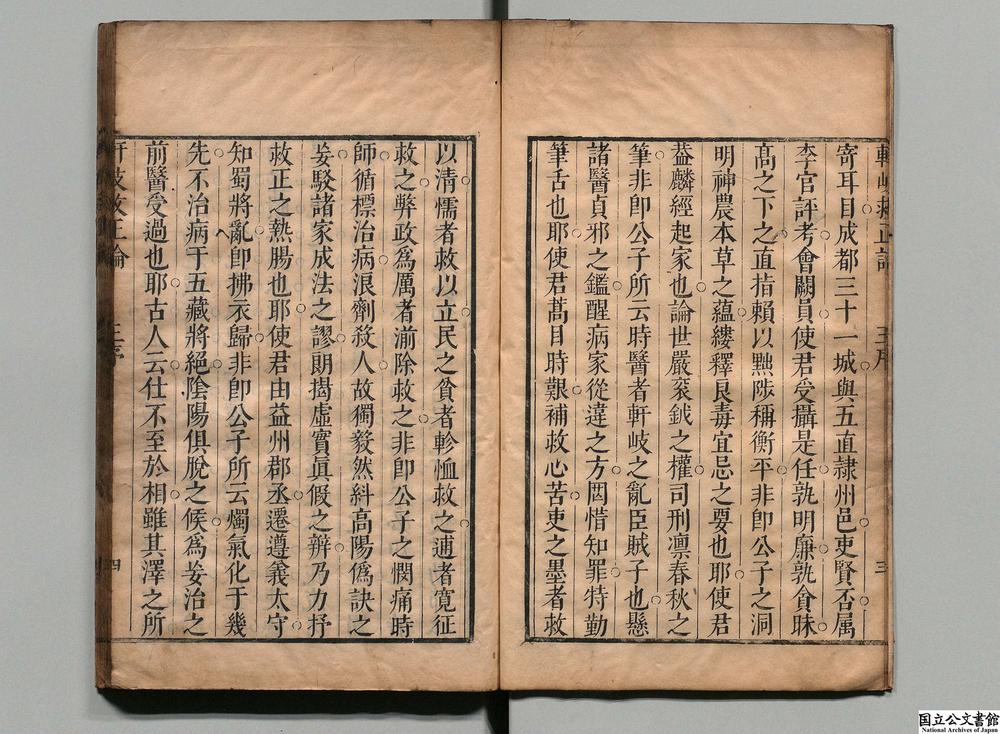 軒岐救正論 三序 三
寄耳目成都三十一城與五直隷州邑吏賢否属
李官評考會闕員使君受攝是任孰明廉孰貪昧
髙之下之直指賴以黜陟稱衡平非即公子之洞
明神農本草之蘊縷釋良毒宜忌之要也耶使君
葢麟經起家也論世嚴衮鉞之權司刑凛春秋之
筆非即公子所云時醫者軒岐之亂臣賊子也懸
諸醫貞邪之鑑醒病家從違之方因惜知罪特勤
筆舌也耶使君蒿目時艱補救心苦吏之墨者救
以清懦者救以立民之貧者軫恤救之逋者寛征
救之弊政為厲者湔除救之非即公子之憫痛時
師循標治病浪劑殺人故獨毅然糾高陽偽訣之
妄駁諸家成法之謬朗揭虛實眞假之辨乃力抒
救正之熱腸也耶使君由益州郡丞遷遵義太守
知蜀將亂即拂衣歸非即公子所云燭氣化于幾
先不治病于五藏將絕陰陽俱脫之候為妄治之
前醫受過也耶古人云仕不至於相雖其澤之所
軒岐救正論 三序 四
国立公文書館
National Archives of Japan